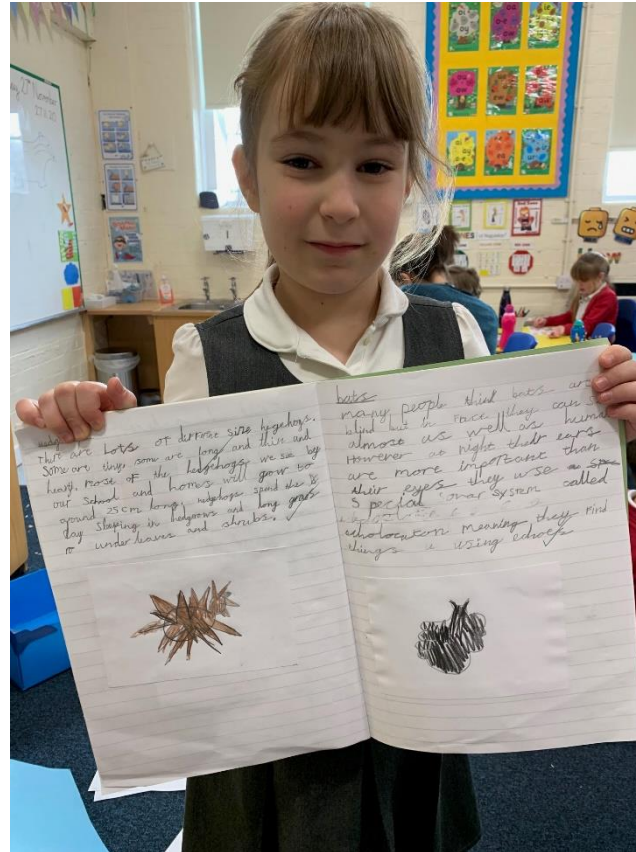 November
There are Lots of diffrece size hedgehogs.
Some are tiny, some are long and thin and
heavy. most of the hedgehogs we see by
our school and homes will grow to
around 25cm long. hedgehogs spend the
day sleeping in hedgrows and long grass
under leaves and shrubs. ✓
bats
many people think bats are
blind but in face they can
almost as well as human
However at night their ears
are more important than
their eyes they use
Special onar system called
echolocaton meaning they find
things using echoes